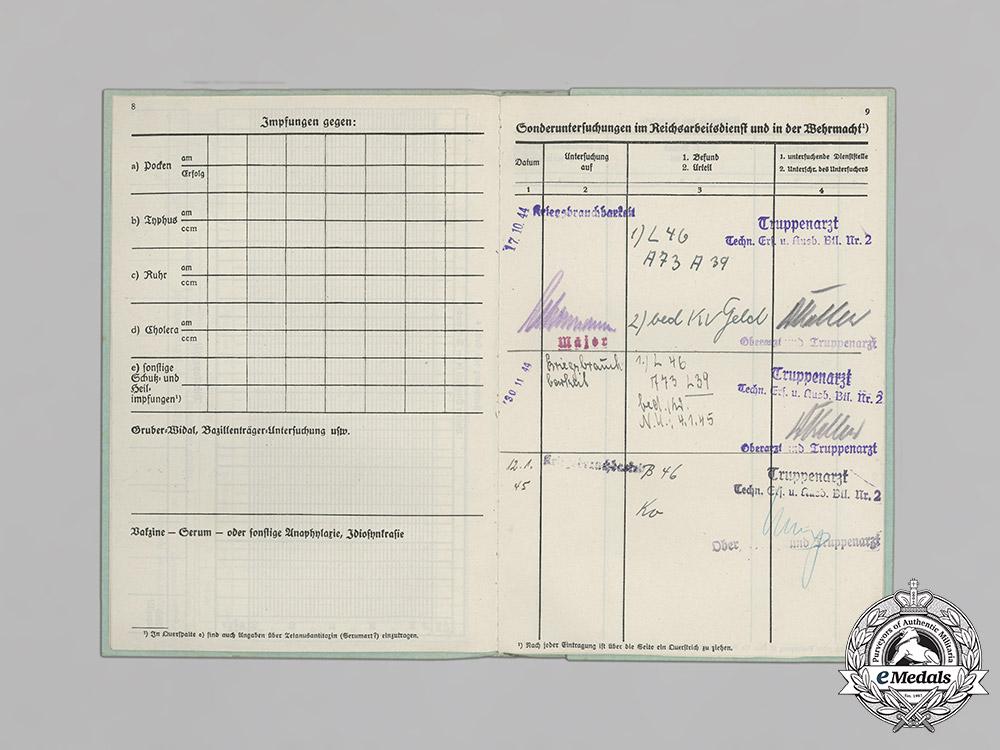 8
Impfungen gegen:
a) Pocken
am
Erfolg
b) Typhus
am
ccm
c) Ruhr
am
ccm
d) Cholera
am
ccm
e) sonstige
Schutz- und
Heil-
impfungen¹)
Gruber-Widal, Bazillenträger-Untersuchung usw.
Vakzine — Serum — oder sonstige Anaphylaxie, Idiosynkrasie
¹) In Querspalte e) sind auch Angaben über Tetanusantitoxin (Serumart?) einzutragen.
9
Sonderuntersuchungen im Reichsarbeitsdienst und in der Wehrmacht¹)
Datum
Untersuchung
auf
1. Befund
2. Urteil
1. untersuchende Dienststelle
2. Unterschr. des Untersuchers
1 2 3 4
17. 10. 44
Kriegsbrauchbarkeit
1) L 46
A 73 A 39
Truppenarzt
Techn. Ers. u. Ausb. Btl. Nr. 2
Major
2) bed Kv Feld
Oberarzt und Truppenarzt
30 11 44
Kriegsbrauch
barkeit
1.) L 46
A 73 L 39
bed. kv.
N.U., 4.1.45
Truppenarzt
Techn. Ers. u. Ausb. Btl. Nr. 2
Oberarzt und Truppenarzt
12.1.
45
Kriegsbrauchbarkeit
B 46
Kv
Truppenarzt
Techn. Ers. u. Ausb. Btl. Nr. 2
Ober und Truppenarzt
¹) Nach jeder Eintragung ist über die Seite ein Querstrich zu ziehen.
Purveyors of Authentic Militaria
eMedals
Est. 1967